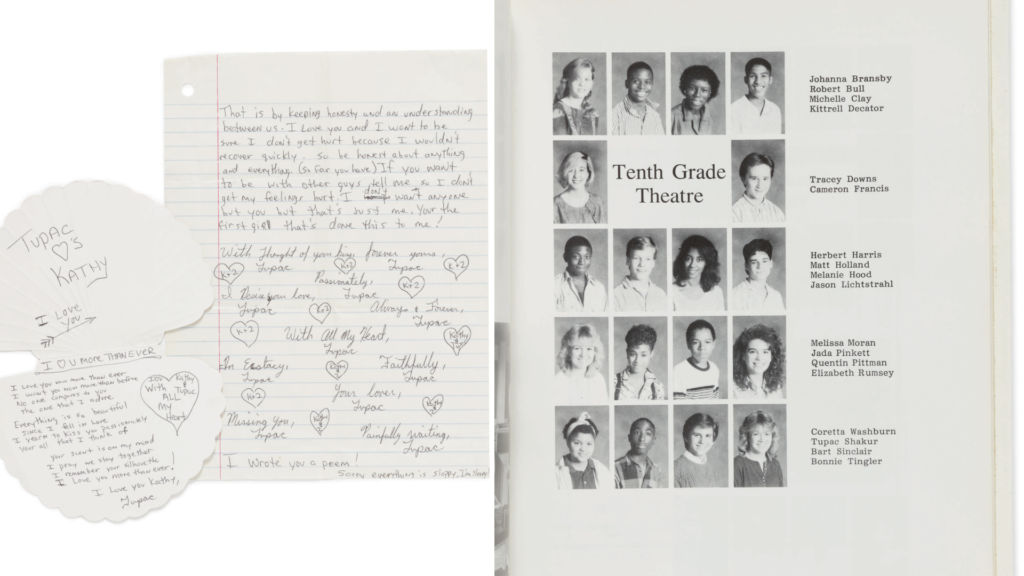 TUPAC
♡'S
KATHY
I LOVE
YOU
I ♡ U MORE THAN EVER
I Love you now more than ever
I want you now more than before
No one compares to you
the one that I adore
Everything is so beautiful
Since I fell in love
I yearn to kiss you passionately
Your all that I think of
your scent is on my mind
I pray we stay together
I remember your silhouette
I Love you more than ever!
I Love you Kathy,
Tupac
Kathy
Tupac
With
ALL
My
Heart
That is by keeping honesty and an understanding
between us. I Love you and I want to be
sure I don't get hurt because I wouldn't
recover quickly. So be honest about anything
and everything (so far you have) If you want
to be with other guys tell me so I don't
get my feelings hurt. I don't want anyone
but you but that's just me. Your the
first girl that's done this to me!
With thought of your , forever yours,
Tupac Tupac
K+2 K+2 K+2
Passionately,
Tupac K+2
I Desire your love, Always & Forever,
Tupac K+2 Tupac
K+2 With All My Heart, Kathy
Tupac
In Ecstacy, Faithfully,
Tupac Tupac
K+2 Your lover,
Tupac
Missing You, Painfully waiting,
Tupac Tupac
I Wrote you a poem!
Sorry everything is sloppy, I'm
Tenth Grade
Theatre
Johanna Bransby
Robert Bull
Michelle Clay
Kittrell Decator
Tracey Downs
Cameron Francis
Herbert Harris
Matt Holland
Melanie Hood
Jason Lichtstrahl
Melissa Moran
Jada Pinkett
Quentin Pittman
Elizabeth Rumsey
Coretta Washburn
Tupac Shakur
Bart Sinclair
Bonnie Tingler